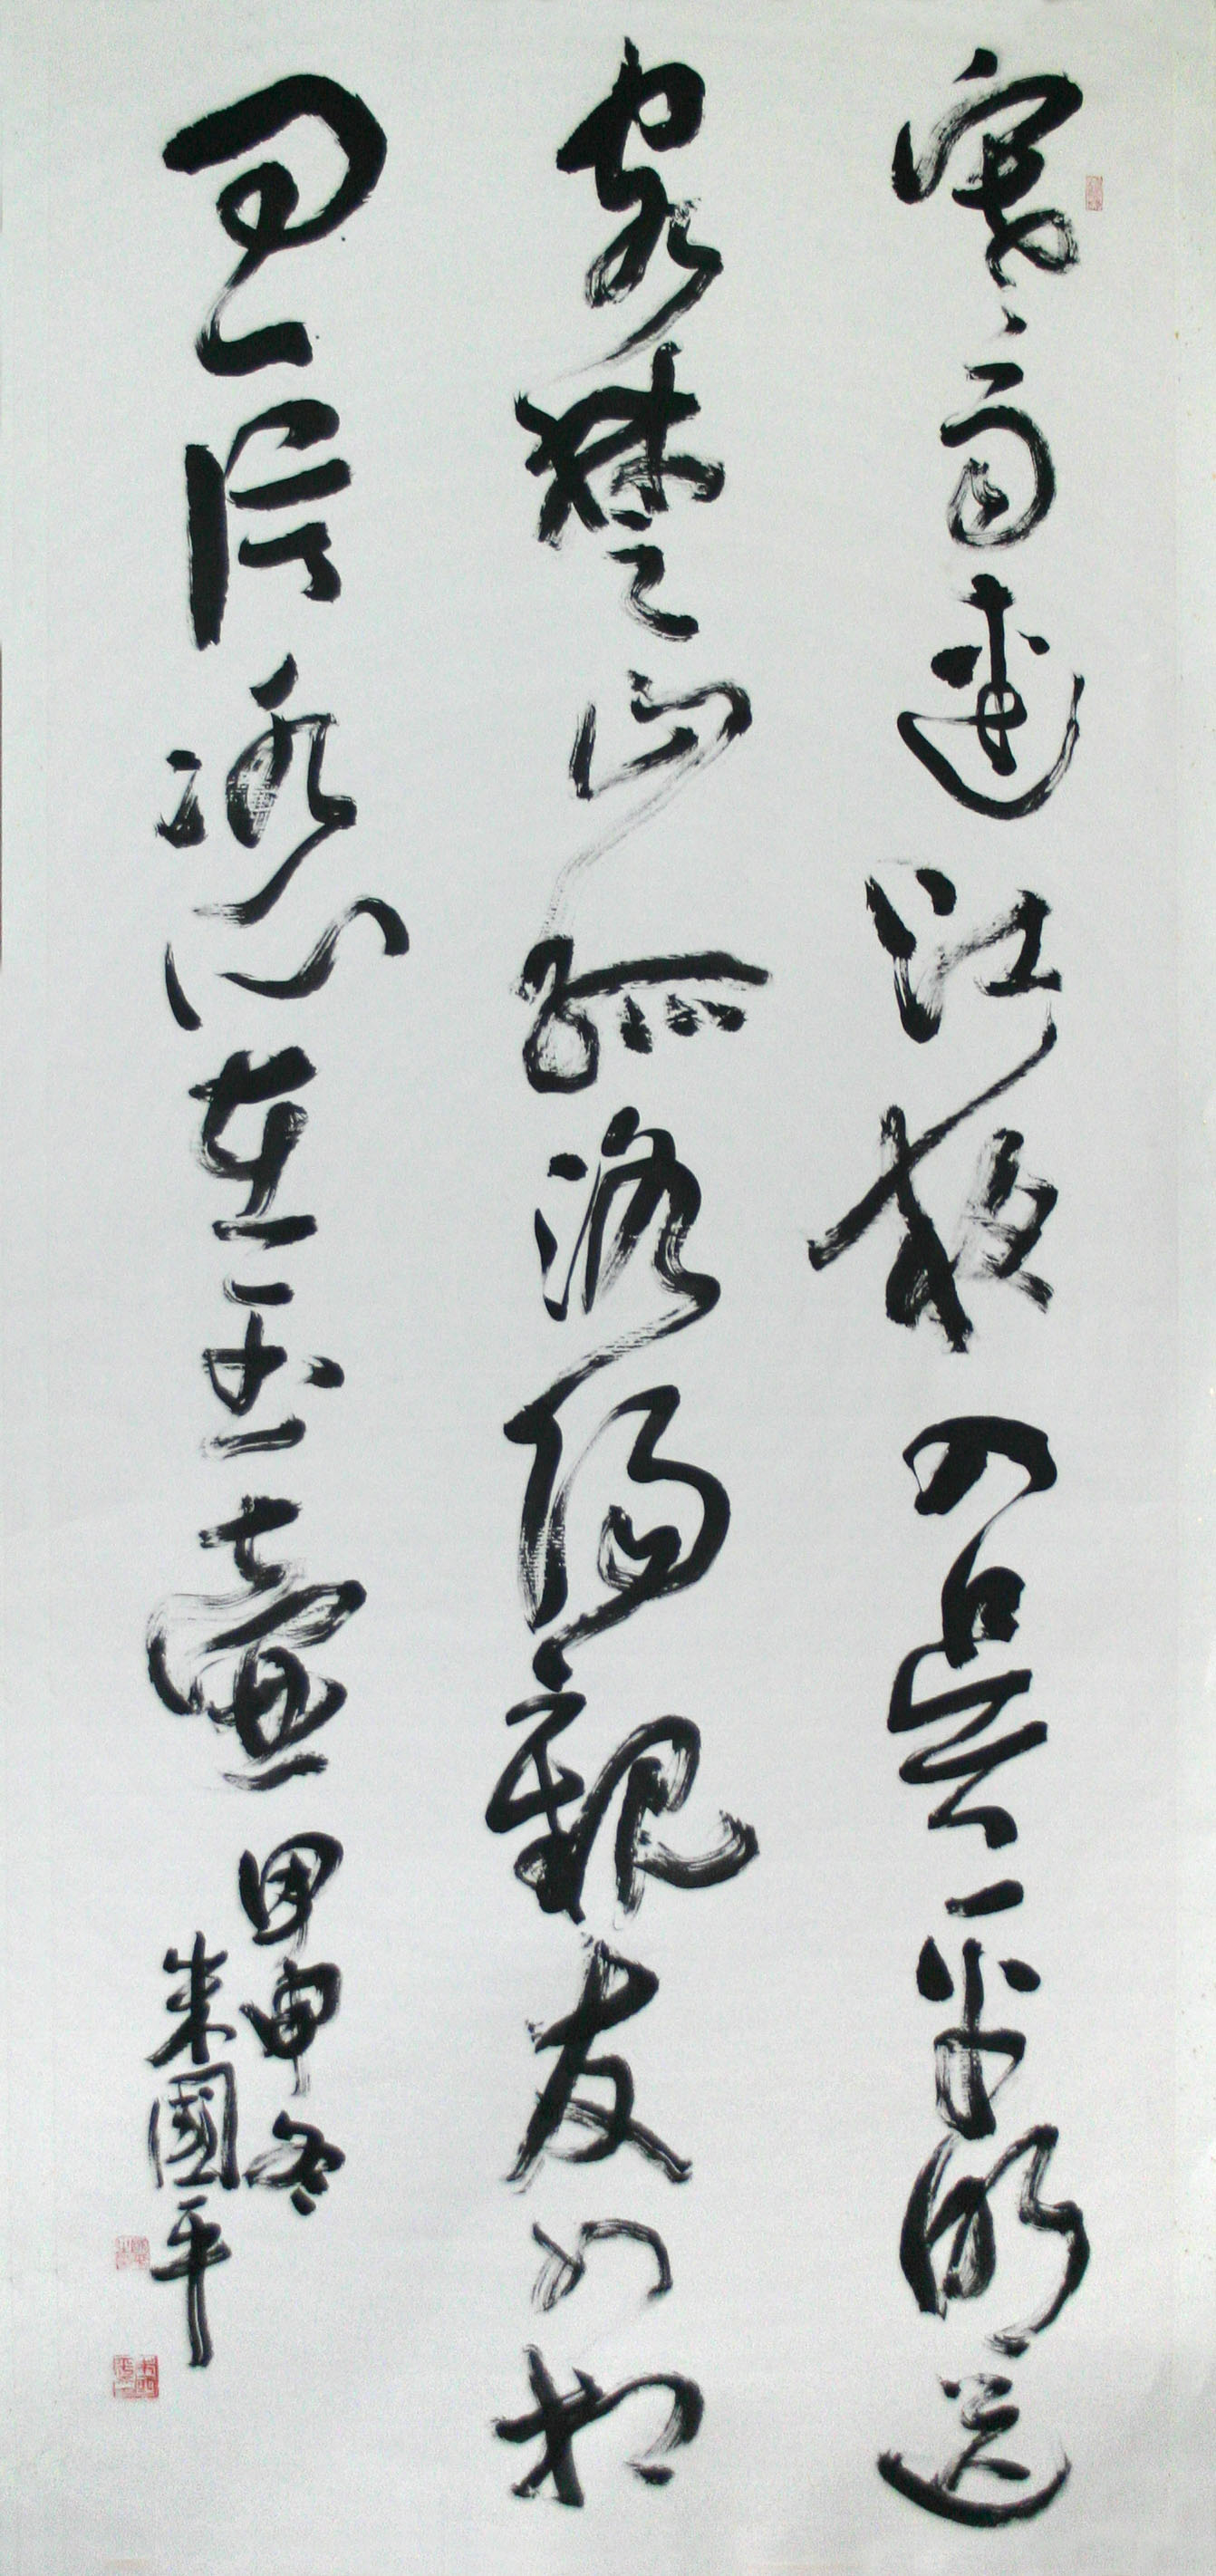 寒雨連江夜入吳平明送
客楚山孤洛陽親友如相
問一片冰心在玉壺
甲申冬
朱國平